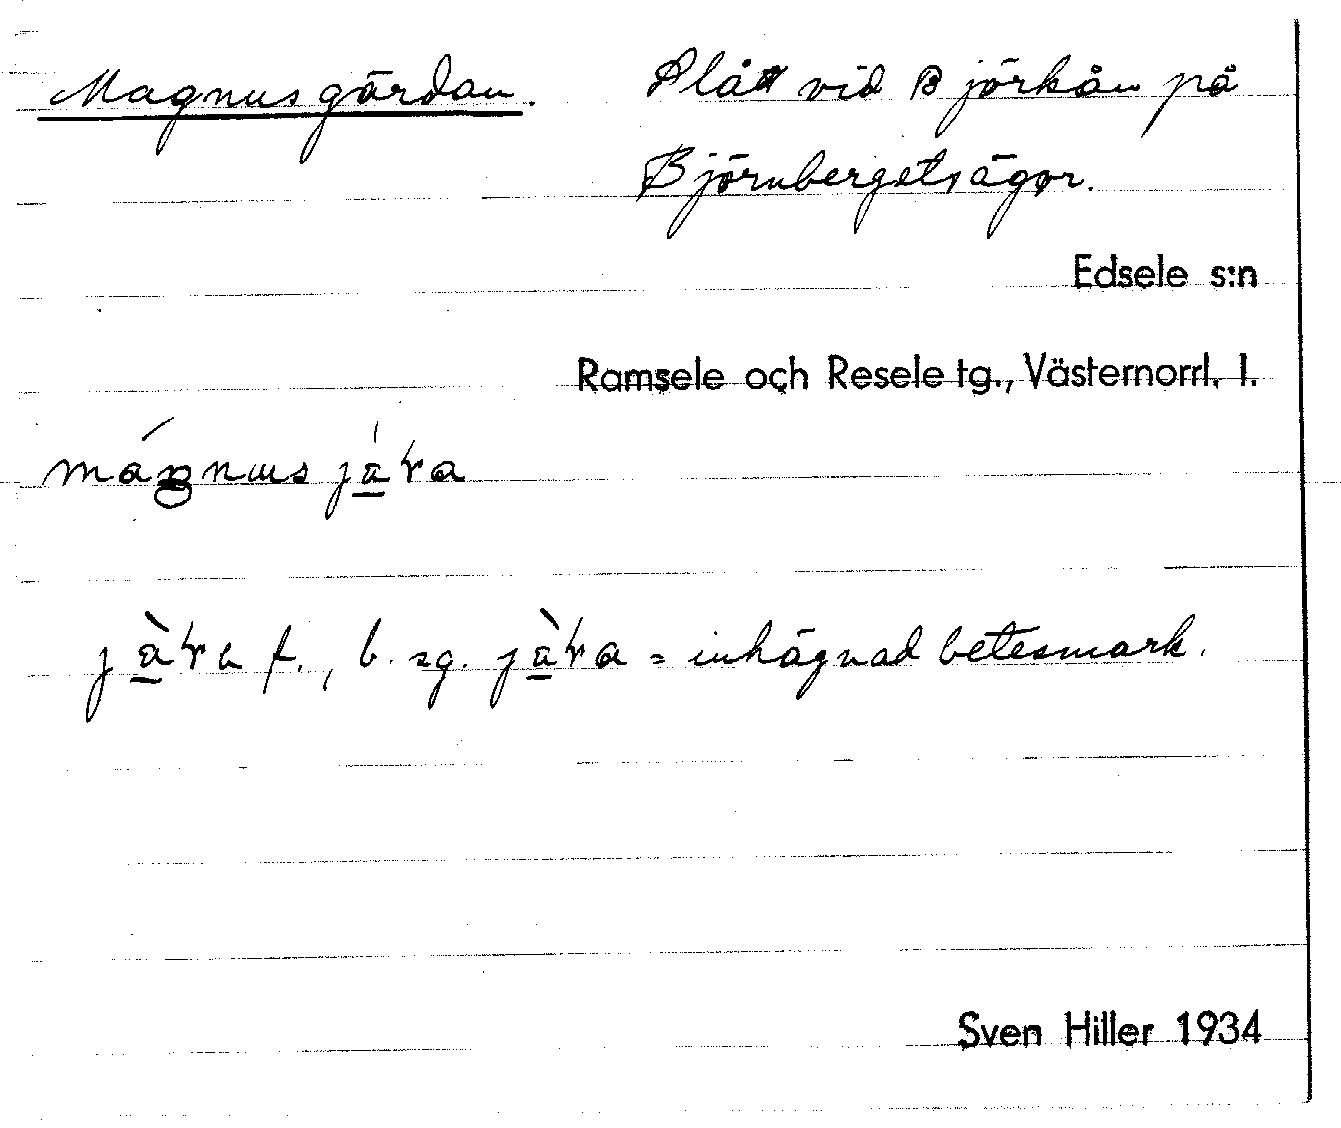 Magnusgärdan. Slått vid Björkån på
Björnbergetsägor.
Edsele s:n
Ramsele och Resele tg., Västernorrl. l.
f., b. sg. = inhägnad betesmark.
Sven Hiller 1934